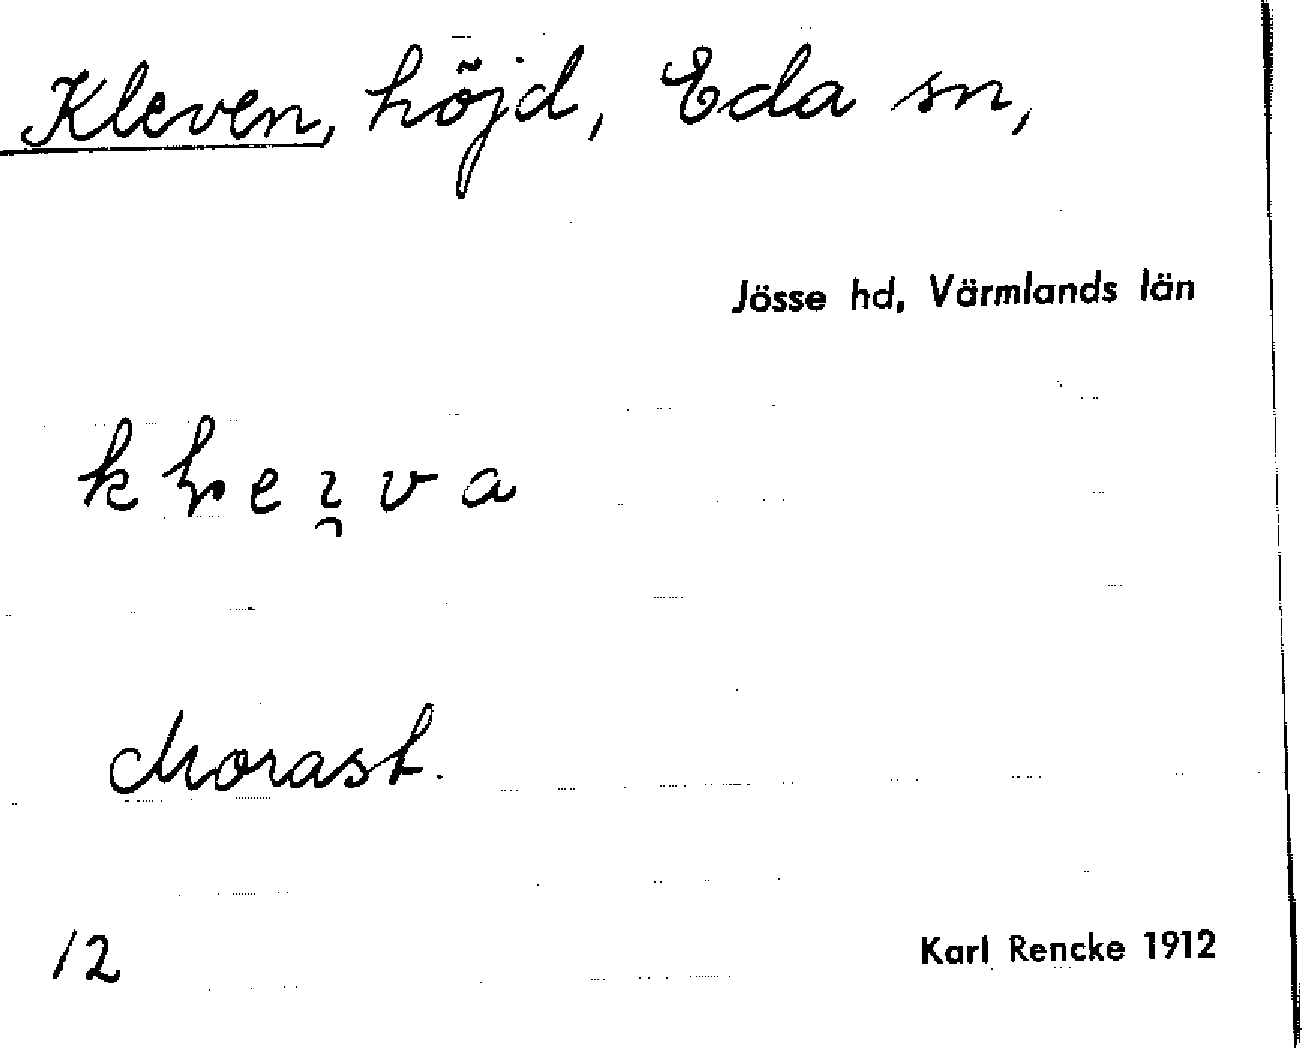 Kleven, höjd, Eda sn,
Jösse hd, Värmlands län
Morast.
12
Karl Rencke 1912